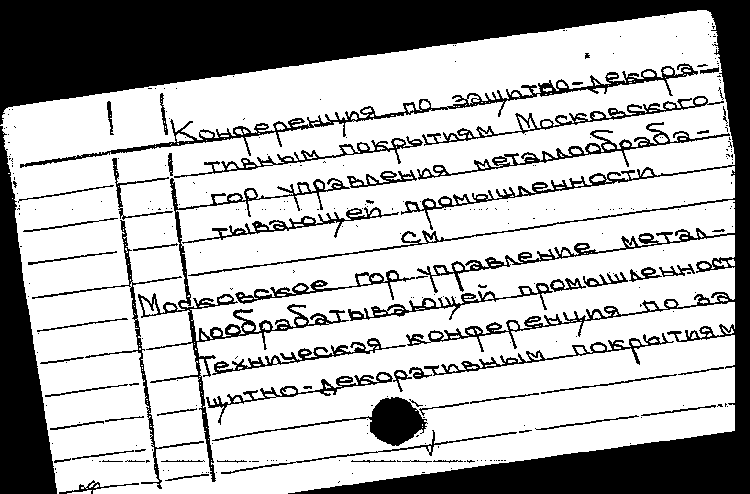 Конференция по защитно-декора-
тивным покрытиям Московского
гор. управления металлообраба-
тывающей промышленности.
см.
Московское гор. управление метал-
лообрабатывающей промышленност
Техническая конференция по за
щитно-декоративным покрытиям